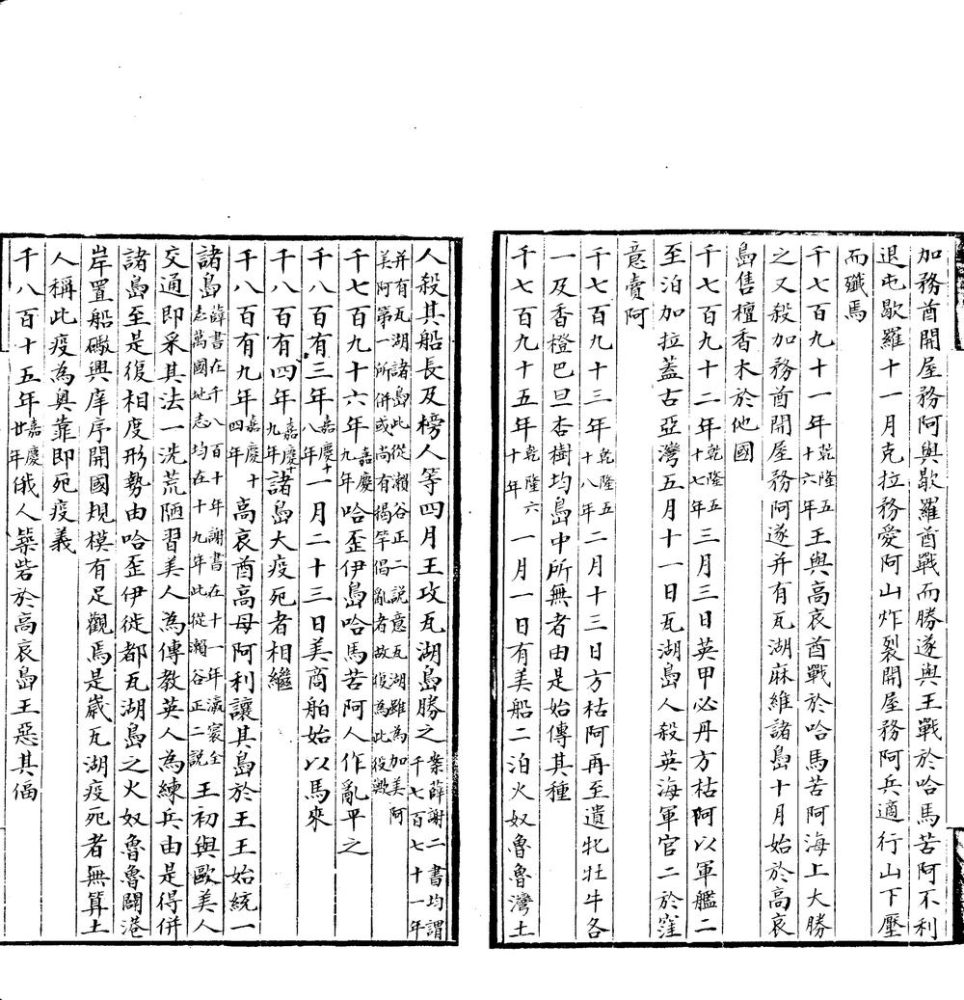 加務酋開屋務阿與歇羅酋戰而勝遂與王戰於哈馬苦阿不利
退屯歇羅十一月克拉務愛阿山炸裂開屋務阿兵適行山下壓
而殲焉
千七百九十一年乾隆五十六年王與高哀酋戰於哈馬苦阿海上大勝
之又殺加務酋開屋務阿遂并有瓦湖麻維諸島十月始於高哀
島售檀香木於他國
千七百九十二年乾隆五十七年三月三日英甲必丹方枯阿以軍艦二
至泊加拉蓋古亞灣五月十一日瓦湖島人殺英海軍官二於窪
意賣阿
千七百九十三年乾隆五十八年二月十三日方枯阿再至遺牝牡牛各
一及香橙巴旦杏樹均島中所無者由是始傳其種
千七百九十五年乾隆六十年一月一日有美船二泊火奴魯魯灣土
人殺其船長及榜人等四月王攻瓦湖島勝之案薛謝二書均謂千七百七十一年
并有瓦湖諸島此從瀨谷正二說意瓦湖雖為加美阿美阿第一所併或尚有揭竿倡亂者故復為此役歟
千七百九十六年嘉慶九年哈歪伊島哈馬苦阿人作亂平之
千八百有三年嘉慶十八年一月二十三日美商舶始以馬來
千八百有四年嘉慶十九年諸島大疫死者相繼
千八百有九年嘉慶十四年高哀酋高母阿利讓其島於王王始統一
諸島薛書在千八百十年謝書在十一年瀛寰全志萬國地志均在十九年此從瀨谷正二說王初與歐美人
交通即采其法一洗荒陋習美人為傳教英人為練兵由是得併
諸島至是復相度形勢由哈歪伊徙都瓦湖島之火奴魯魯闢港
岸置船礮興庠序開國規模有足觀焉是歲瓦湖疫死者無算土
人稱此疫為奥靠即死疫義
千八百十五年嘉慶廿年俄人築砦於高哀島王惡其偪